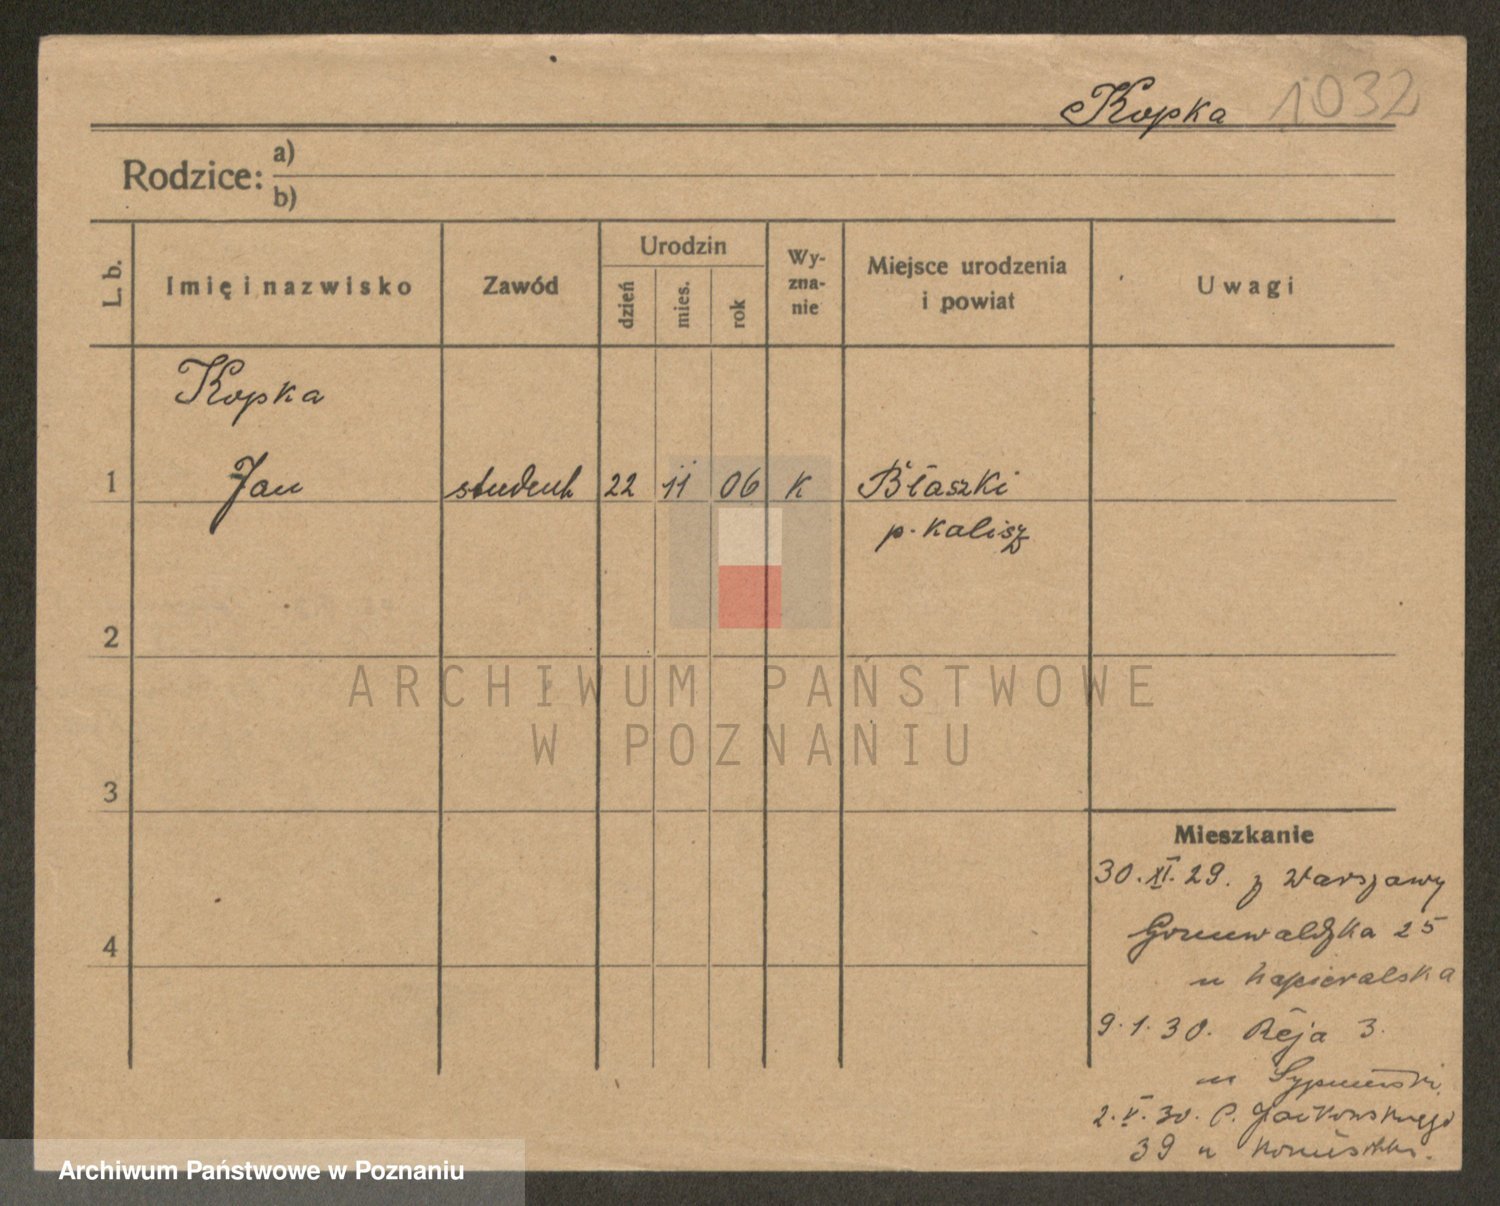 Kopka 1032
Rodzice: a)
b)
L. b.
Imię i nazwisko
Zawód
Urodzin
dzień
mies.
rok
Wy-
zna-
nie
Miejsce urodzenia
i powiat
Uwagi
Kopka
1 Jan student 22 11 06 K Błaszki
p. Kalisz
2
3
4
ARCHIWUM PAŃSTWOWE
W POZNANIU
Mieszkanie
30.XI.29. z Warszawy
Grunwaldzka 25
u Napieralska
9.1.30. Reja 3.
u
2.V.30. P. Jackowskiego
39 u
Archiwum Państwowe w Poznaniu